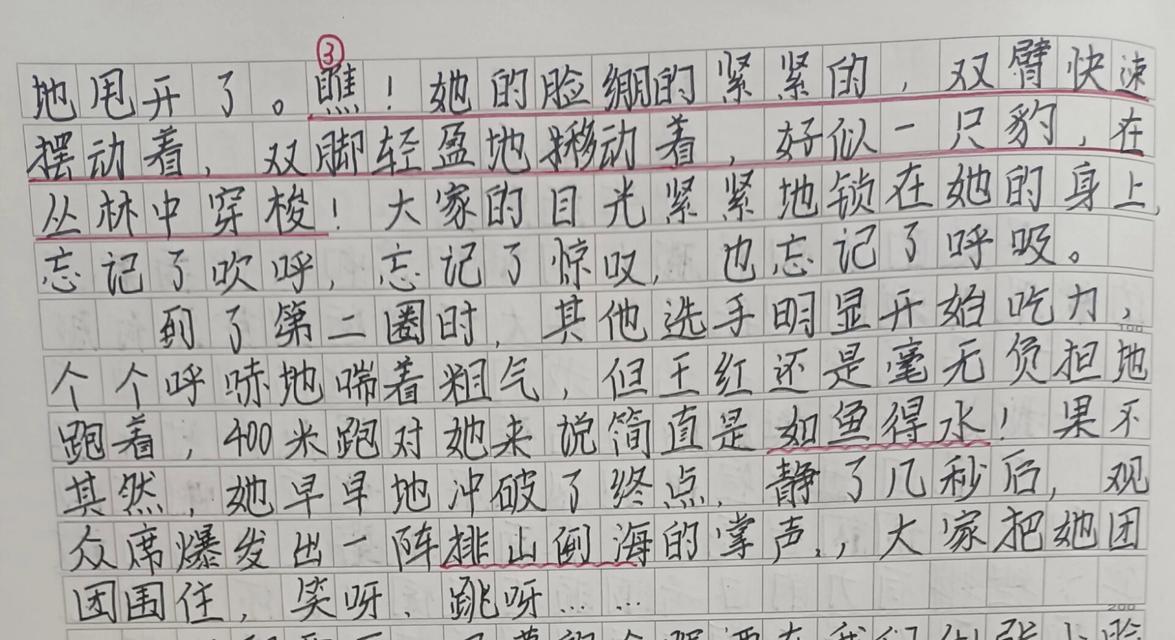 ③
地甩开了。瞧！她的脸绷的紧紧的，双臂快速
摆动着，双脚轻盈地移动着，好似一只豹，在
丛林中穿梭！大家的目光紧紧地锁在她的身上，
忘记了吹呼，忘记了惊叹，也忘记了呼吸。
到了第二圈时，其他选手明显开始吃力，
100
个个呼哧地喘着粗气，但王红还是毫无负担地
跑着，400米跑对她来说简直是如鱼得水！果不
其然，她早早地冲破了终点，静了几秒后，观
众席爆发出一阵排山倒海的掌声，大家把她团
团围住，笑呀、跳呀……
200